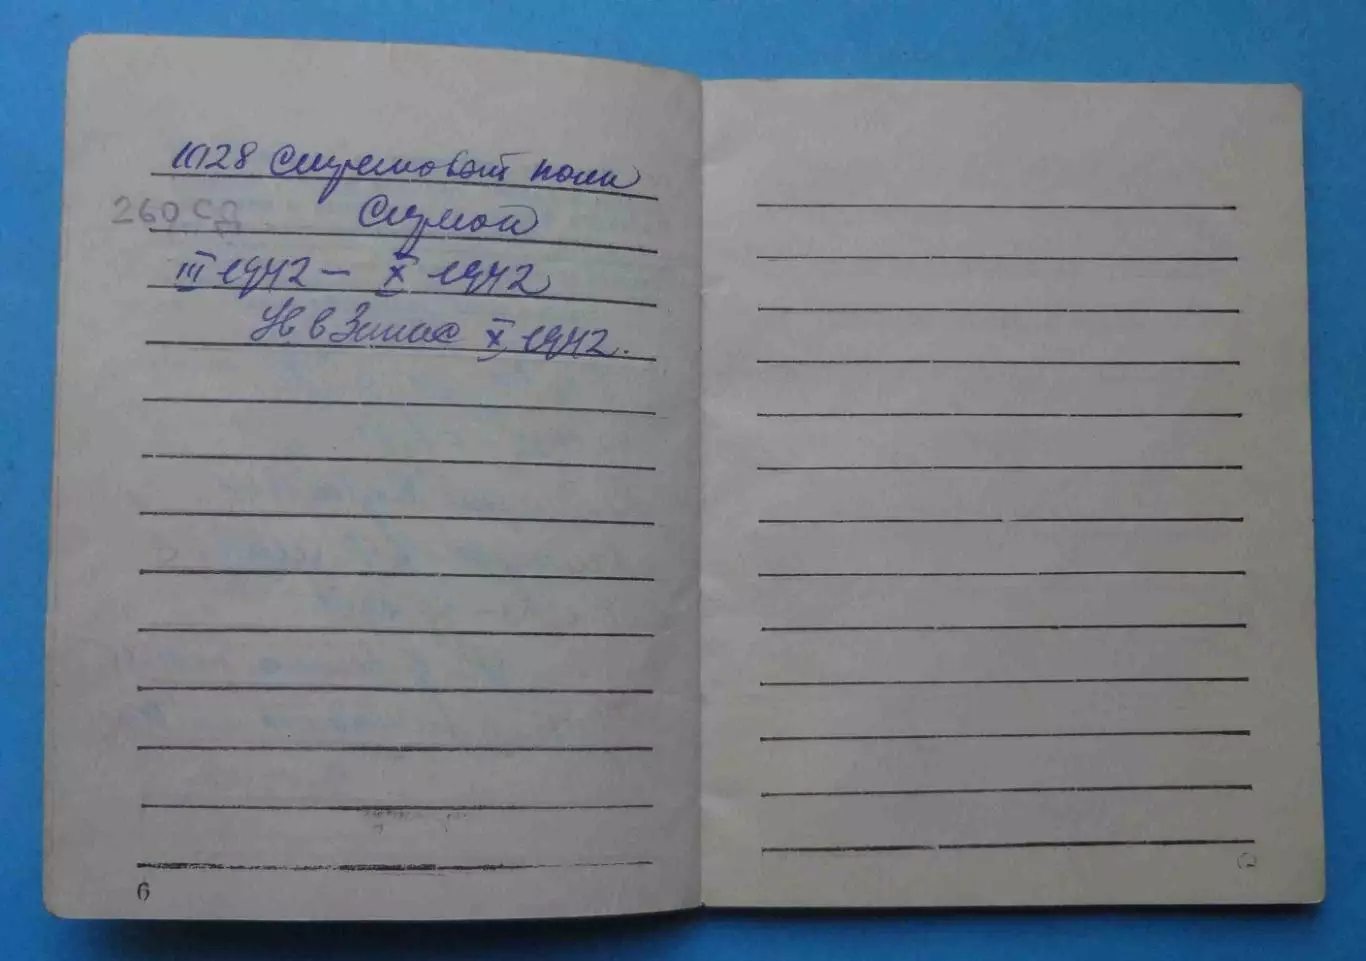 1028 Стрелковый полк
260 СД Стрелок
III 1942 – X 1942
Ув в Запас X 1942.
6